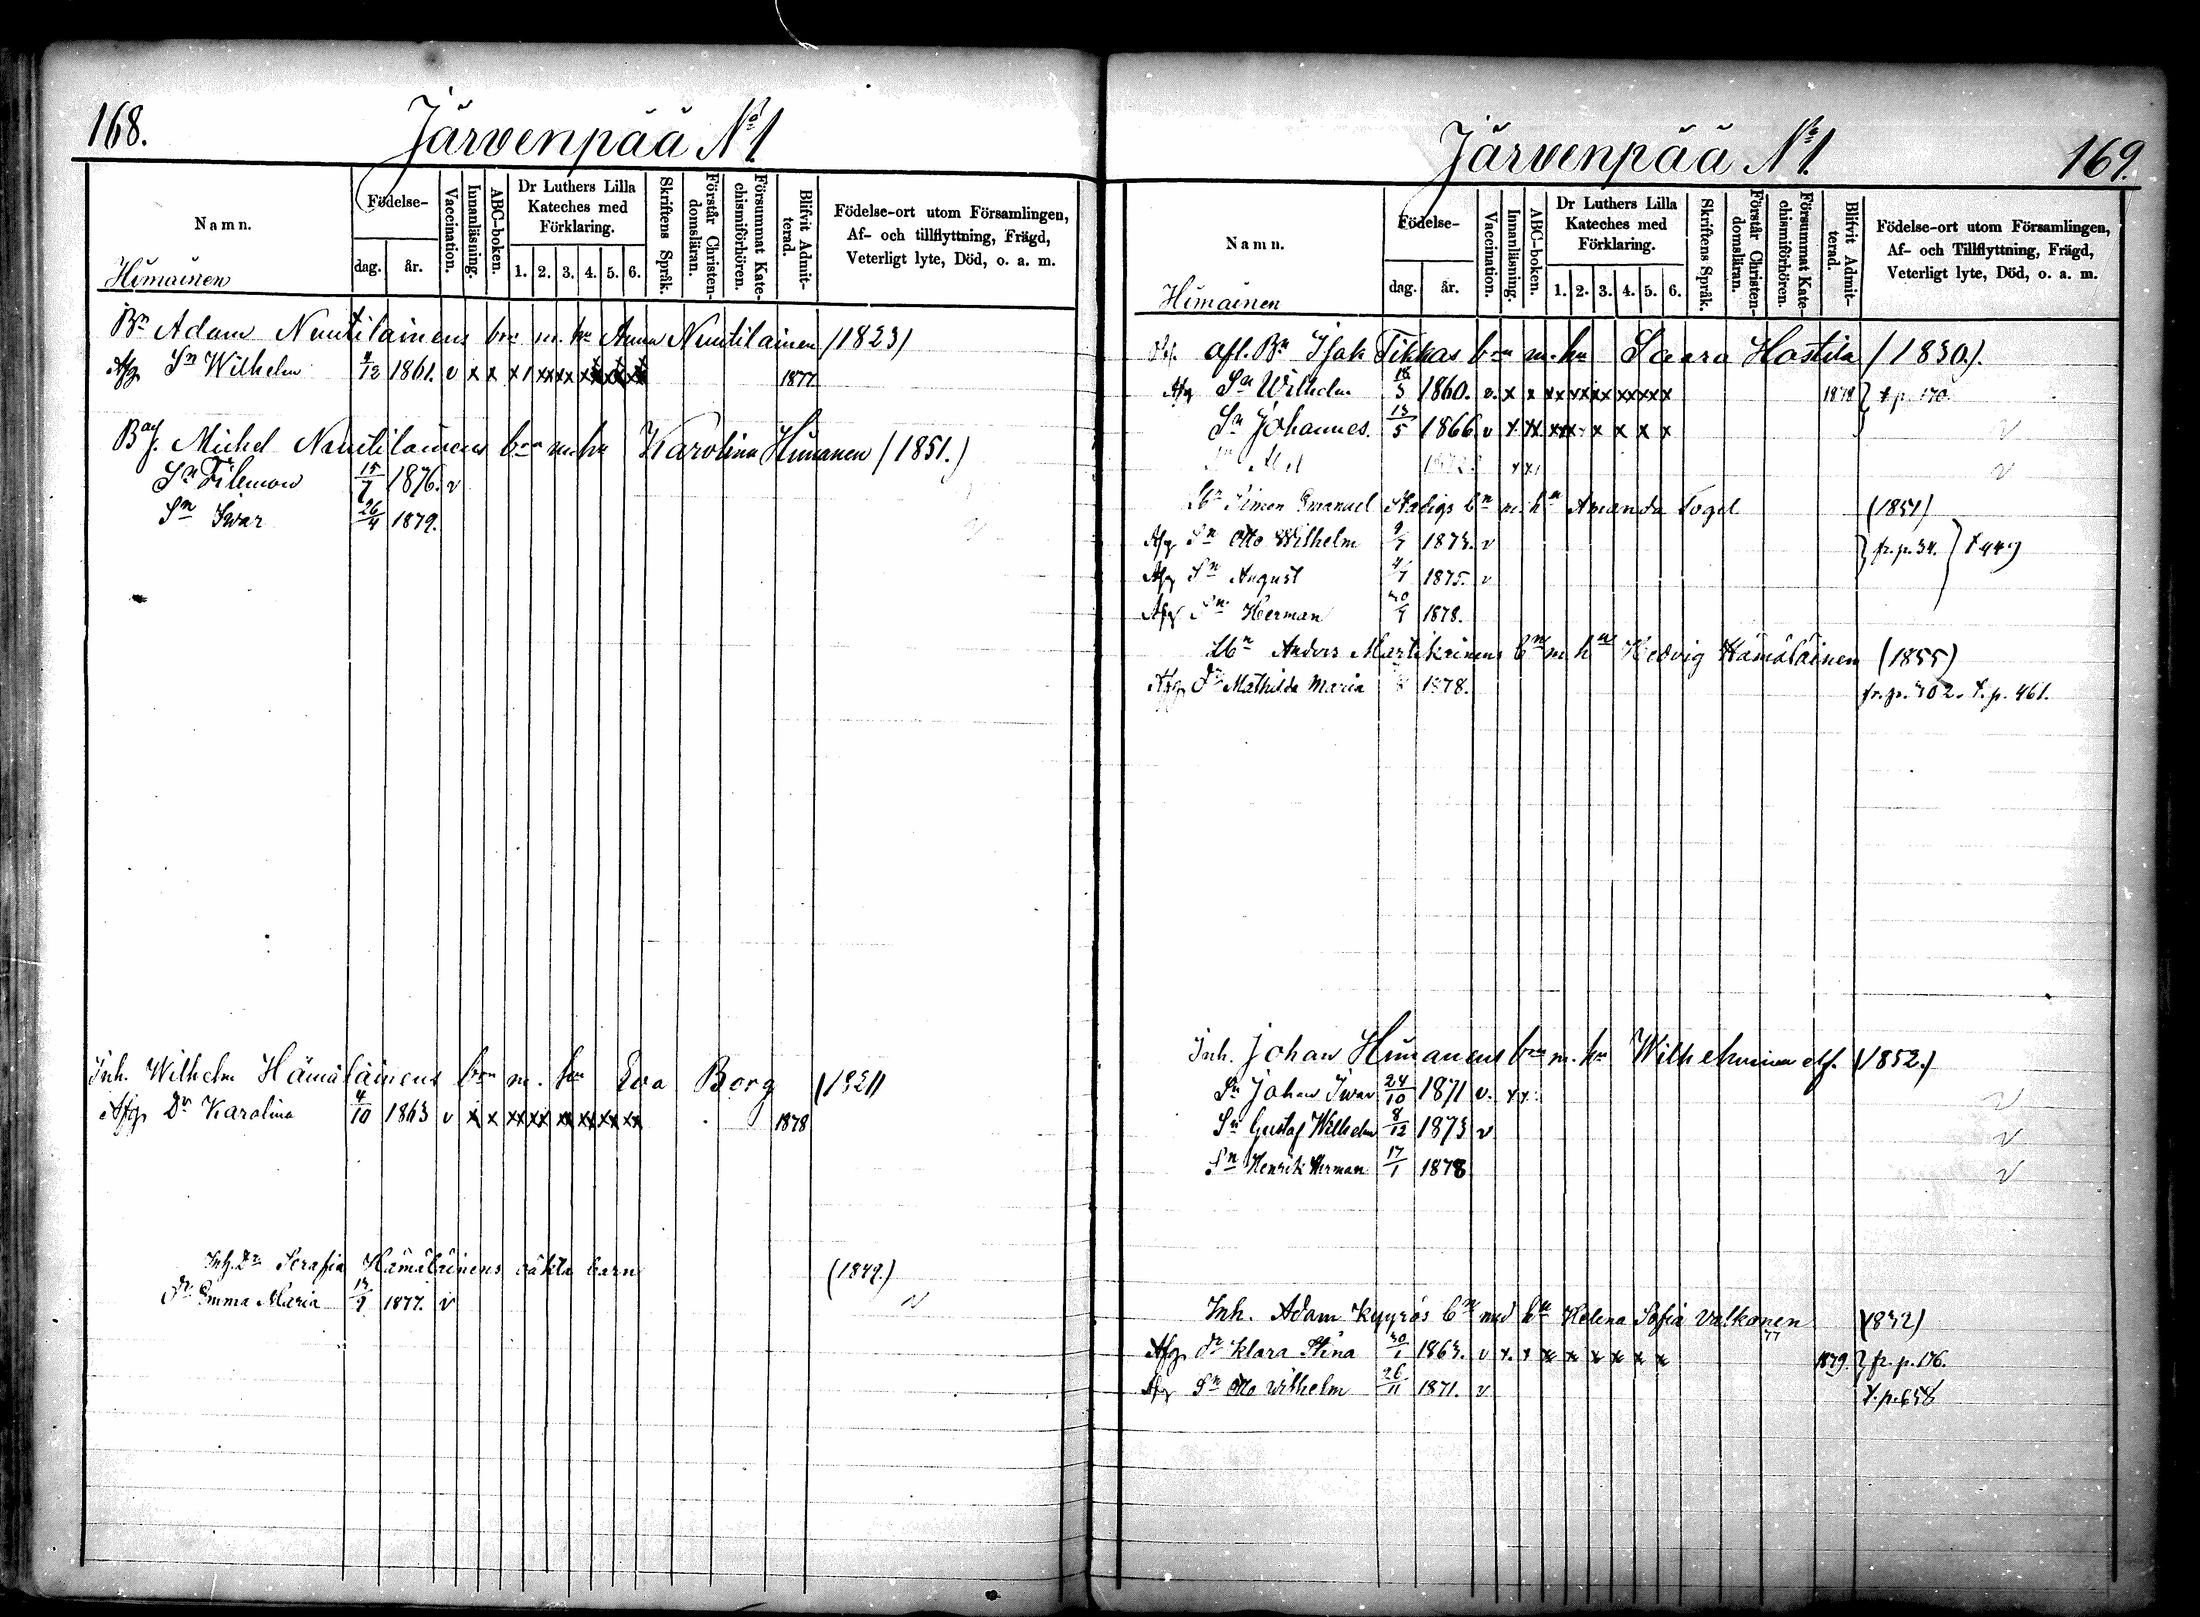 168.
Järvenpää No 1
Namn.
Födelse-
dag.
år.
Vaccination.
Innanläsning.
ABC-boken.
Dr Luthers Lilla Kateches med Förklaring.
1. 2. 3. 4. 5. 6.
Skriftens Språk.
Förstår Christendomsläran.
Försummat Katechismiförhören.
Blifvit Admitterad.
Födelse-ort utom Församlingen,
Af- och tillflyttning, Frägd,
Veterligt lyte, Död, o. a. m.
Himainen
Bn Adam Nuutilainens brn m. hu Anna Nuutilainen (1823)
Afg Sn Wilhelm 4/12 1861. v x x x 1 xx xx xx xx xx 1877
Michel Nuutilainens brn m. hu Karolina Himanen (1851.)
Sn Filemon 15/7 1876. v
Sn Iwar 26/4 1879.
Inh. Wilhelm Hämäläinens brn m. hu Eva Borg
Afg Dr Karolina 4/10 1863 v x x xx xx xx xx xx xx 1878
Inh. Dr Serafia Hämäläinens oäkta barn (1849.)
dr Emma Maria 13/9 1877. v
169.
Järvenpää No 1.
Namn.
Födelse-
dag.
år.
Vaccination.
Innanläsning.
ABC-boken.
Dr Luthers Lilla Kateches med Förklaring.
1. 2. 3. 4. 5. 6.
Skriftens Språk.
Förstår Christendomsläran.
Försummat Katechismiförhören.
Blifvit Admitterad.
Födelse-ort utom Församlingen,
Af- och Tillflyttning, Frägd,
Veterligt lyte, Död, o. a. m.
Himainen
afl. Bn Isak Tikkas brn m. hu Saara Hastila (1830.)
Afg Sn Wilhelm 18/3 1860. v. x x xx xx xx xx xx x 1878 t. p. 170.
Sn Johannes. 13/5 1866 v x xx xx x x x x v
v
Simon Emanuel Stadigs bn m. hu Amanda Fogel (1851)
Afg Sn Otto Wilhelm 1873. v fr. p. 34. t 449
Afg Sn August 1875. v
Afg Sn Herman 1878.
Anders Martikainens bn m hu Hedvig Hämäläinen (1855)
Afg Dr Mathilda Maria 1878. fr. p. 302. t. p. 461.
Inh. Johan Himanens brn m. hu Wilhelmina (1852.)
Sn Johan Iwar 24/10 1871 v. x x v
Sn Gustaf Wilhelm 8/12 1873 v v
Sn Henrik Herman 17/1 1878 v
Inh. Adam Kyyrös bn med hu Helena Sofia Valkonen (1832)
Afg dr Klara Stina 30/1 1863. v x. x x x x x x x 1879. fr. p. 176.
Afg Sn Otto Wilhelm 26/11 1871. v t. p. 658